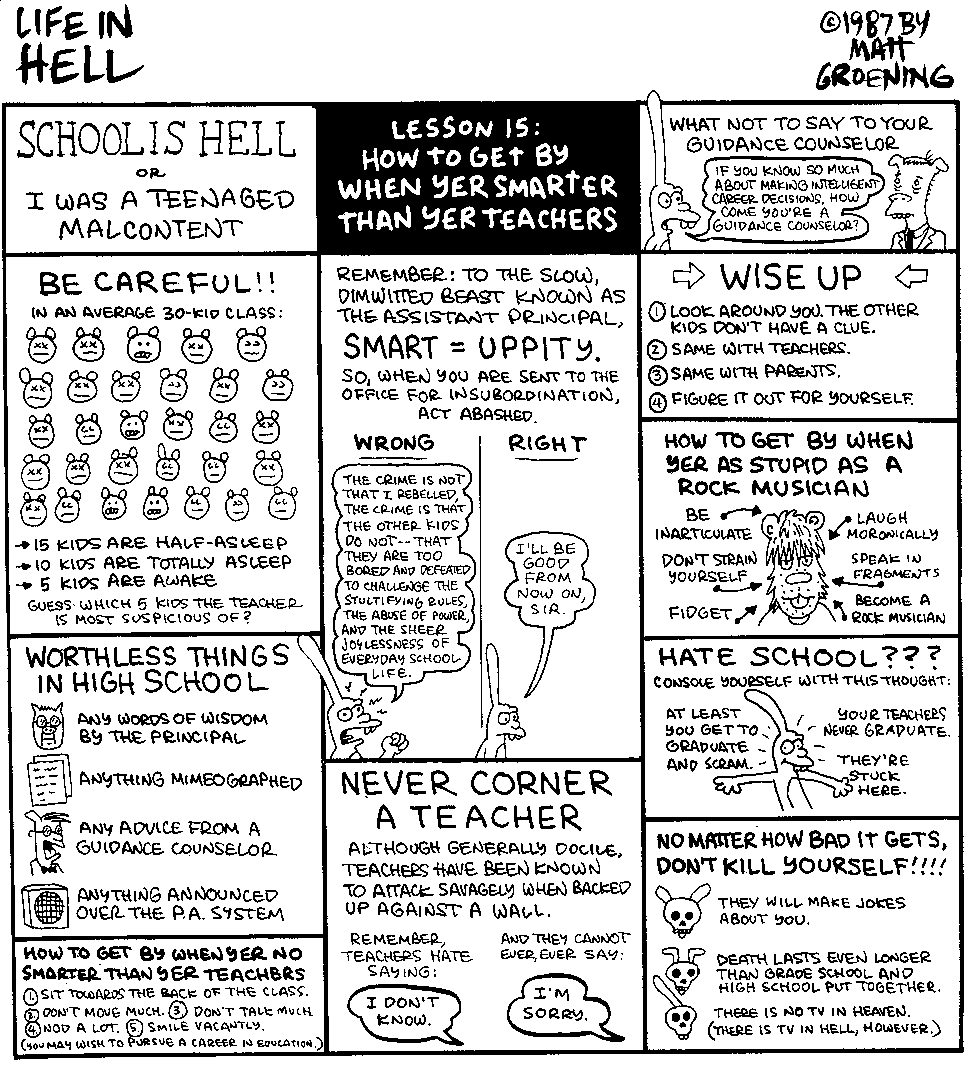 LIFE IN
HELL
©1987 BY
MATT
GROENING
SCHOOL IS HELL
OR
I WAS A TEENAGED
MALCONTENT
LESSON 15:
HOW TO GET BY
WHEN YER SMARTER
THAN YER TEACHERS
WHAT NOT TO SAY TO YOUR
GUIDANCE COUNSELOR
IF YOU KNOW SO MUCH
ABOUT MAKING INTELLIGENT
CAREER DECISIONS, HOW
COME YOU'RE A
GUIDANCE COUNSELOR?
BE CAREFUL!!
IN AN AVERAGE 30-KID CLASS:
→ 15 KIDS ARE HALF-ASLEEP
→ 10 KIDS ARE TOTALLY ASLEEP
→ 5 KIDS ARE AWAKE
GUESS WHICH 5 KIDS THE TEACHER
IS MOST SUSPICIOUS OF?
REMEMBER: TO THE SLOW,
DIMWITTED BEAST KNOWN AS
THE ASSISTANT PRINCIPAL,
SMART = UPPITY.
SO, WHEN YOU ARE SENT TO THE
OFFICE FOR INSUBORDINATION,
ACT ABASHED.
WRONG
THE CRIME IS NOT
THAT I REBELLED,
THE CRIME IS THAT
THE OTHER KIDS
DO NOT--THAT
THEY ARE TOO
BORED AND DEFEATED
TO CHALLENGE THE
STULTIFYING RULES,
THE ABUSE OF POWER,
AND THE SHEER
JOYLESSNESS OF
EVERYDAY SCHOOL
LIFE.
RIGHT
I'LL BE
GOOD
FROM
NOW ON,
SIR.
⇨ WISE UP ⇦
① LOOK AROUND YOU. THE OTHER
KIDS DON'T HAVE A CLUE.
② SAME WITH TEACHERS.
③ SAME WITH PARENTS.
④ FIGURE IT OUT FOR YOURSELF.
HOW TO GET BY WHEN
YER AS STUPID AS A
ROCK MUSICIAN
BE
INARTICULATE
LAUGH
MORONICALLY
DON'T STRAIN
YOURSELF
SPEAK IN
FRAGMENTS
FIDGET
BECOME A
ROCK MUSICIAN
WORTHLESS THINGS
IN HIGH SCHOOL
ANY WORDS OF WISDOM
BY THE PRINCIPAL
ANYTHING MIMEOGRAPHED
ANY ADVICE FROM A
GUIDANCE COUNSELOR
ANYTHING ANNOUNCED
OVER THE P.A. SYSTEM
HATE SCHOOL???
CONSOLE YOURSELF WITH THIS THOUGHT:
AT LEAST
YOU GET TO
GRADUATE
AND SCRAM.
YOUR TEACHERS
NEVER GRADUATE.
THEY'RE
STUCK
HERE.
NEVER CORNER
A TEACHER
ALTHOUGH GENERALLY DOCILE,
TEACHERS HAVE BEEN KNOWN
TO ATTACK SAVAGELY WHEN BACKED
UP AGAINST A WALL.
REMEMBER,
TEACHERS HATE
SAYING:
I DON'T
KNOW.
AND THEY CANNOT
EVER, EVER SAY:
I'M
SORRY.
NO MATTER HOW BAD IT GETS,
DON'T KILL YOURSELF!!!!
THEY WILL MAKE JOKES
ABOUT YOU.
DEATH LASTS EVEN LONGER
THAN GRADE SCHOOL AND
HIGH SCHOOL PUT TOGETHER.
THERE IS NO TV IN HEAVEN.
(THERE IS TV IN HELL, HOWEVER.)
HOW TO GET BY WHEN YER NO
SMARTER THAN YER TEACHERS
① SIT TOWARDS THE BACK OF THE CLASS.
② DON'T MOVE MUCH. ③ DON'T TALK MUCH.
④ NOD A LOT. ⑤ SMILE VACANTLY.
(YOU MAY WISH TO PURSUE A CAREER IN EDUCATION.)